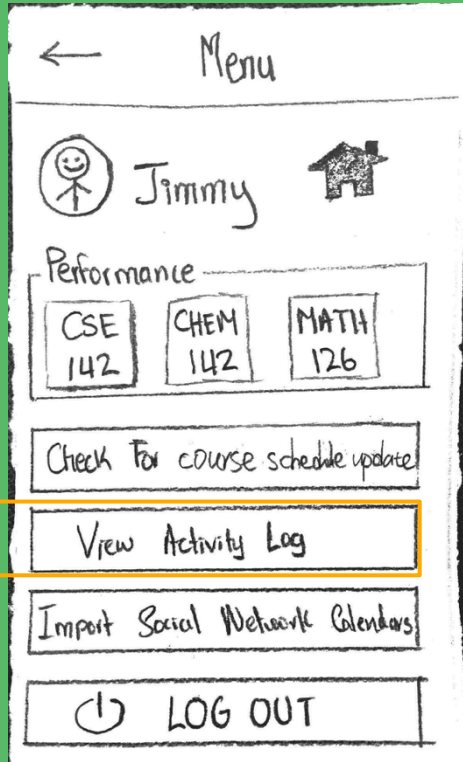 Menu
Jimmy
Performance
CSE
142
CHEM
142
MATH
126
Check For course schedule update
View Activity Log
Import Social Network Calendars
LOG OUT